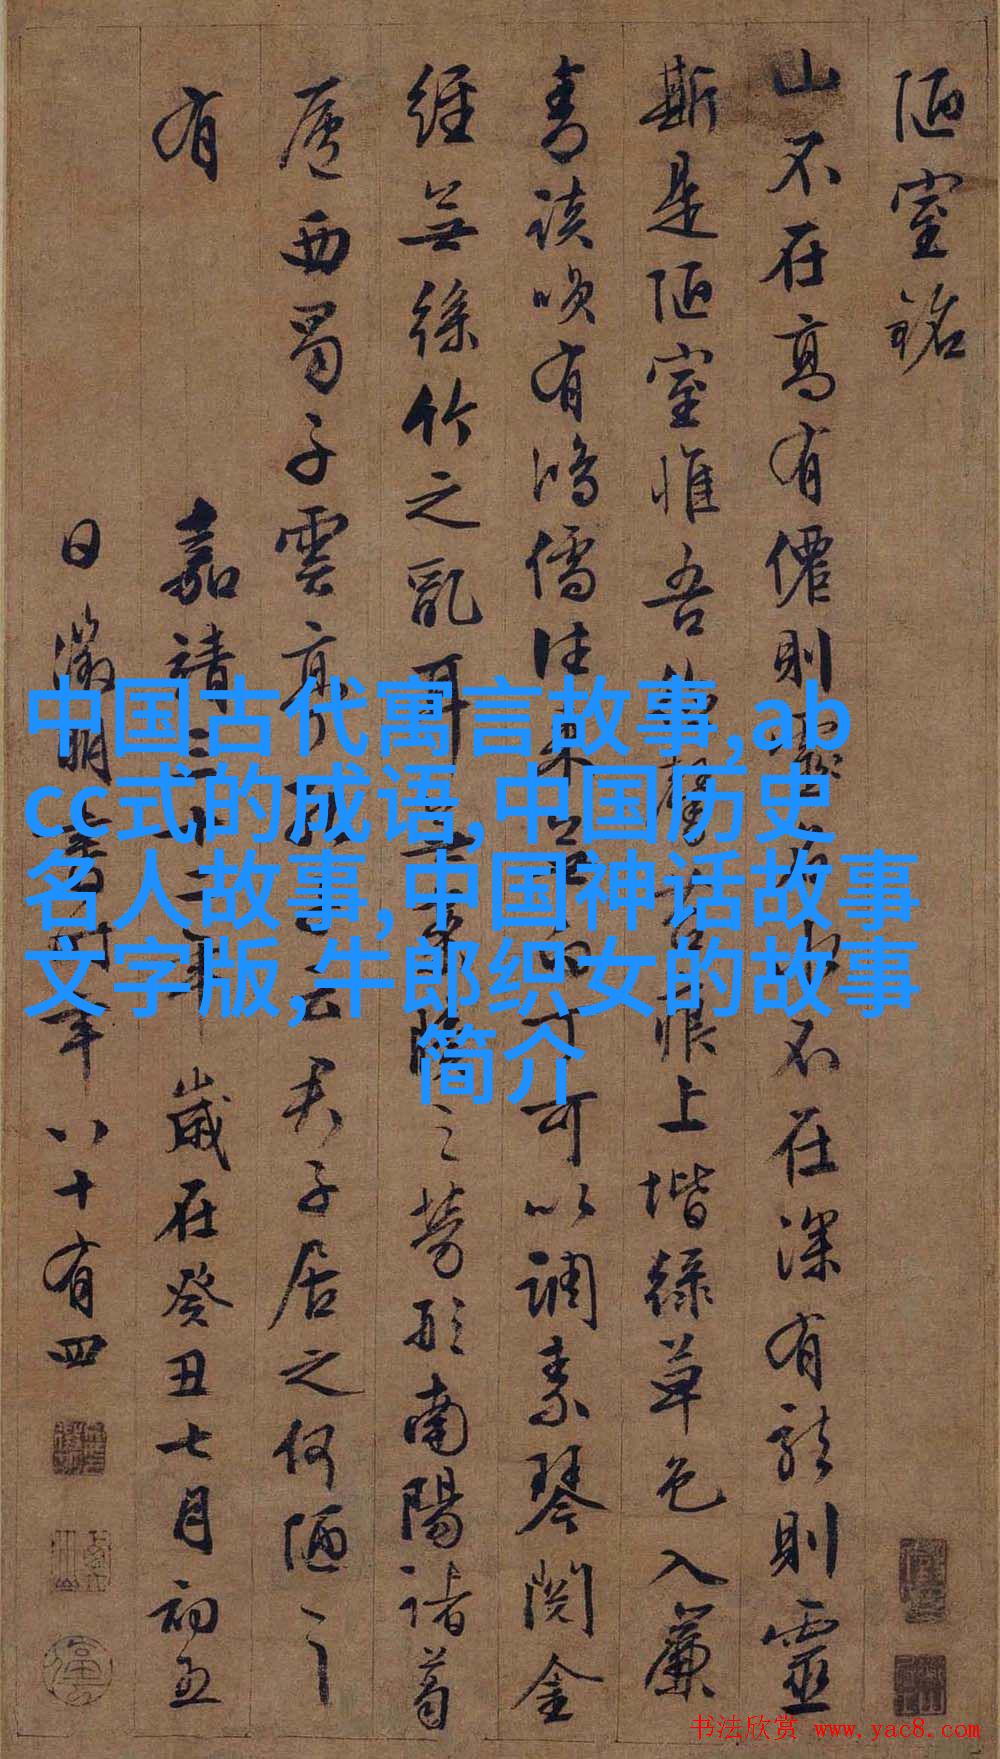 陋室銘
山不在高有僊則不在深有龍則靈
斯是陋室惟吾馨痕上堦綠草色入簾
青談咲有鴻儒往來可以調素琴閱金
經無絲竹之亂耳無之勞形南陽諸葛
廬西蜀子雲亭孔云君子居之何陋之
有
嘉靖三十二年歲在癸丑七月初五
日徵明書時年八十有四
中国古代寓言故事,ab
cc式的成语,中国历史
名人故事,中国神话故事
文字版,牛郎织女的故事
简介
书法欣赏 www.yac8.com